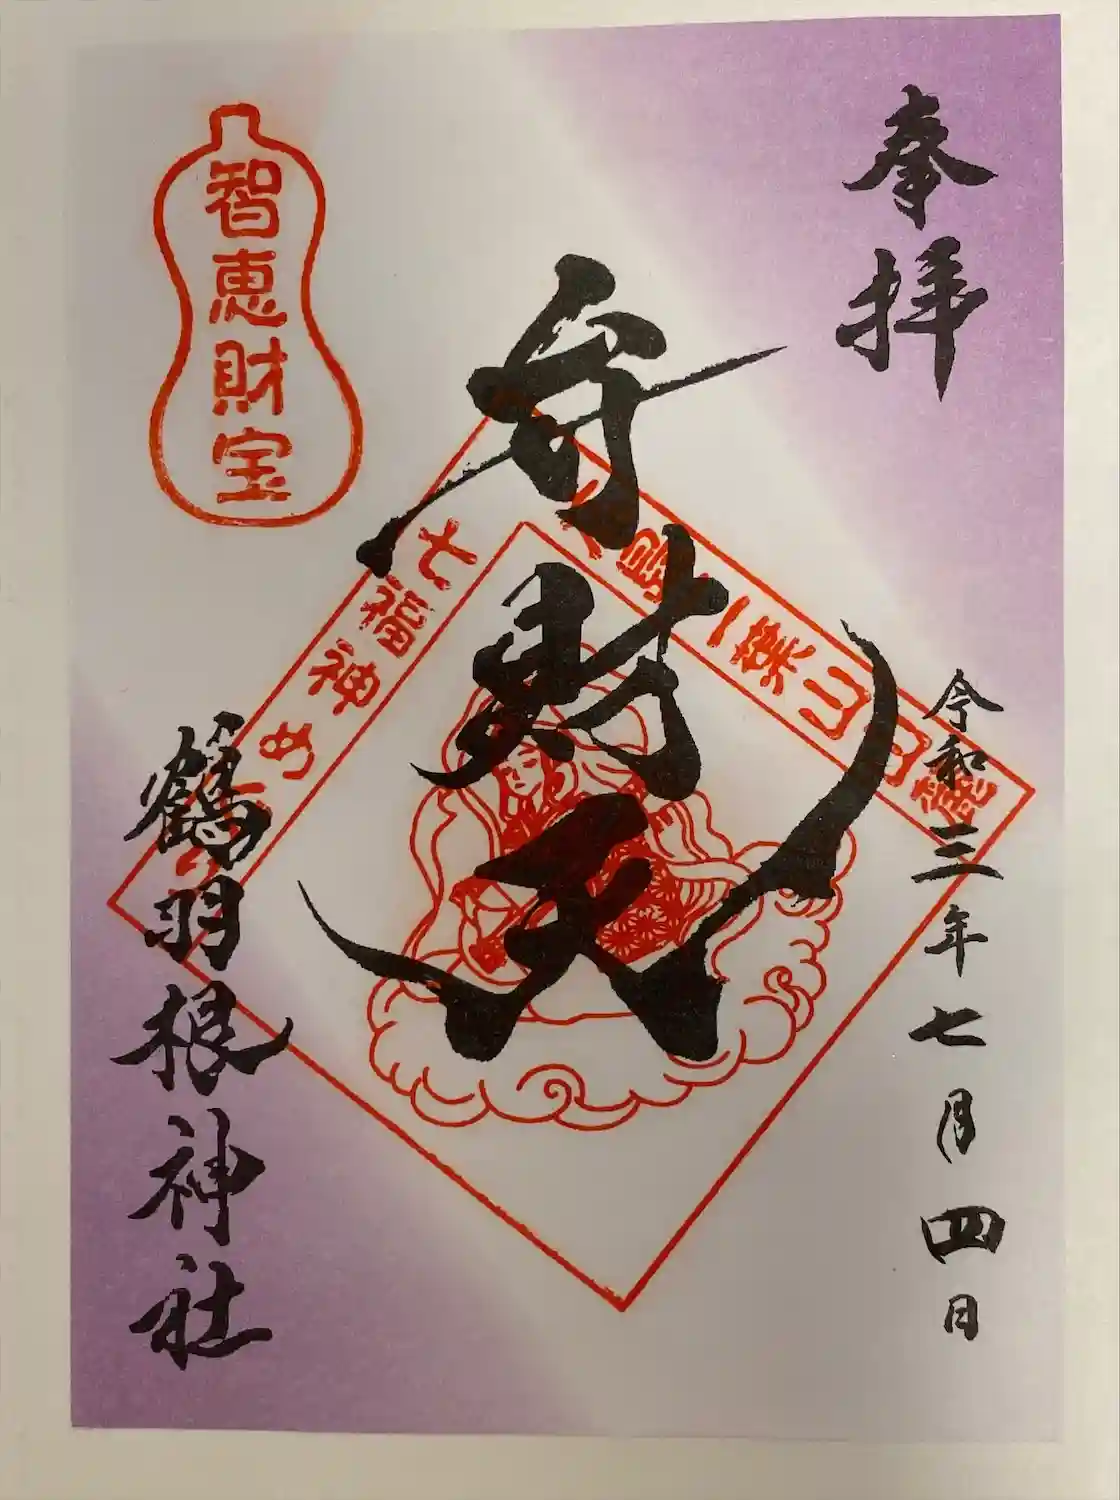 奉拝
令和三年七月四日
弁財天
広島二葉山山麓
七福神めぐり
智恵財宝
鶴羽根神社